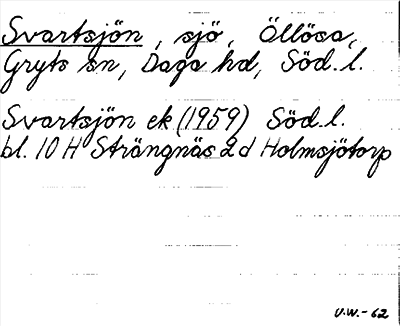 Svartsjön, sjö, Öllösa,
Gryts sn, Daga hd, Söd.l.
Svartsjön ek (1959) Söd.l.
bl. 10 H Strängnäs 2 d Holmsjötorp
U.W.-62